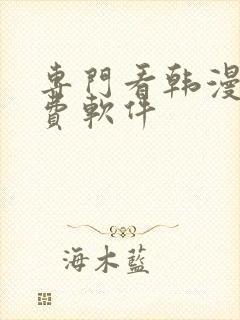 專門看韩漫
費軟件
海木藍